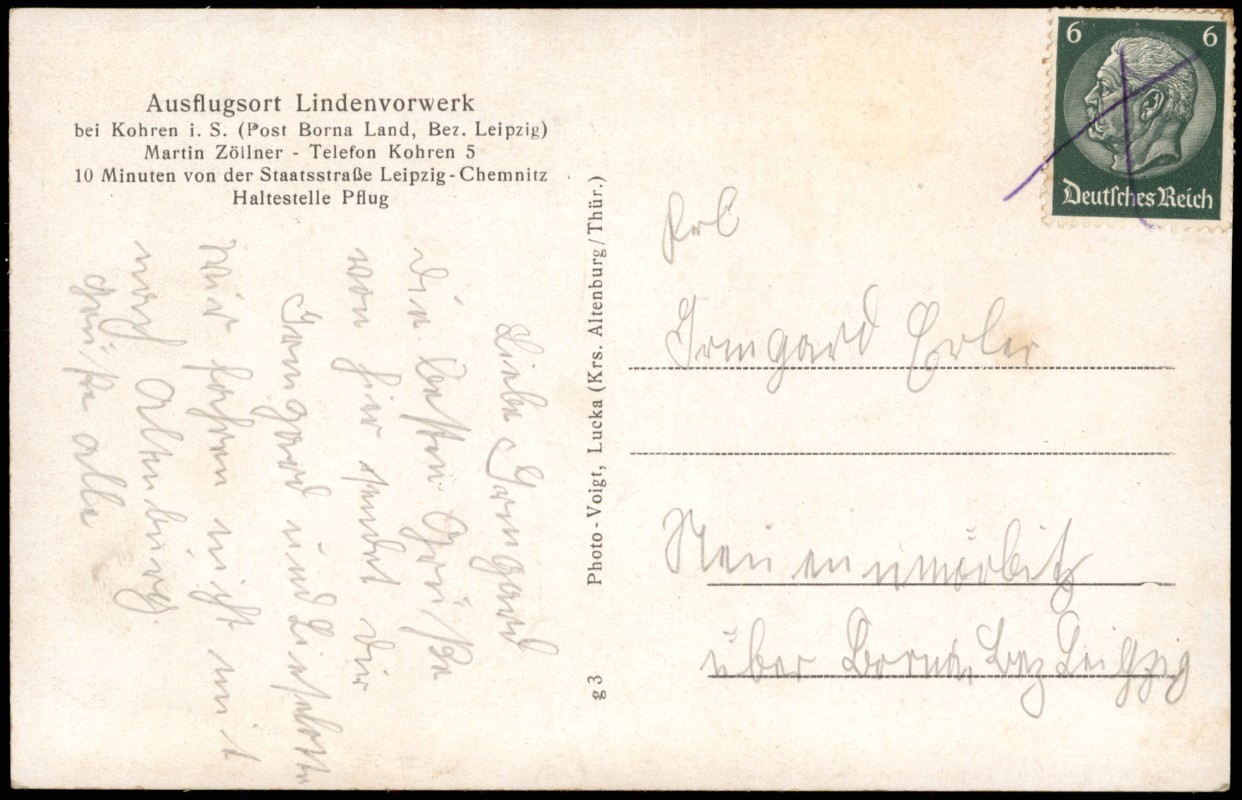 Ausflugsort Lindenvorwerk
bei Kohren i. S. (Post Borna Land, Bez. Leipzig)
Martin Zöllner - Telefon Kohren 5
10 Minuten von der Staatsstraße Leipzig-Chemnitz
Haltestelle Pflug
Liebe Irmgard
Die besten Grüße
von hier sendet dir
Irmgard und Lieselotte
Wir fahren nicht mit
nach Altenburg.
Grüße alle
Photo-Voigt, Lucka (Krs. Altenburg/Thür.)
g 3
6 6
Deutsches Reich
Frl
Irmgard Erler
über Borna, Bez Leipzig